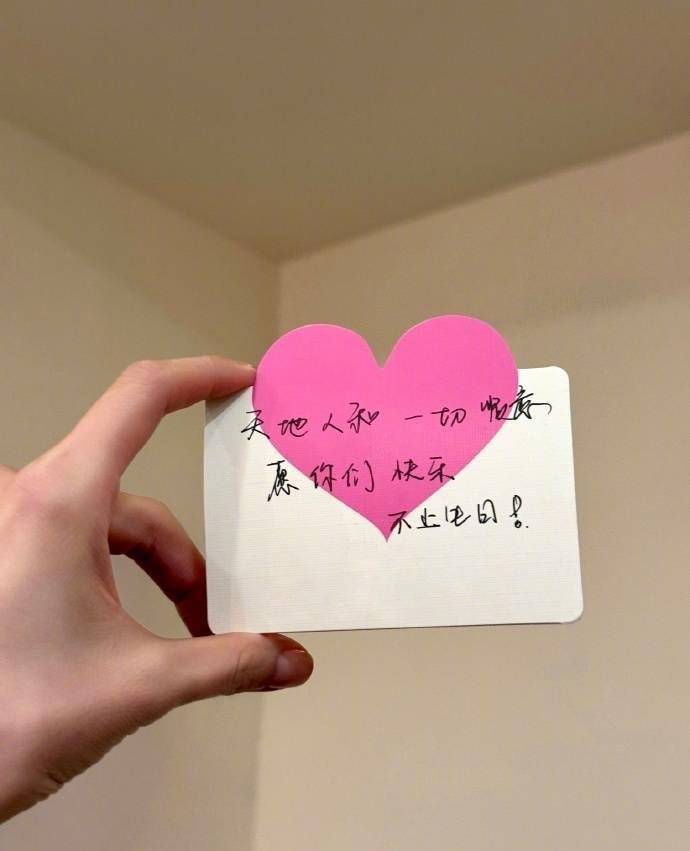 天地人和 一切顺意
愿你们快乐
不止生日!